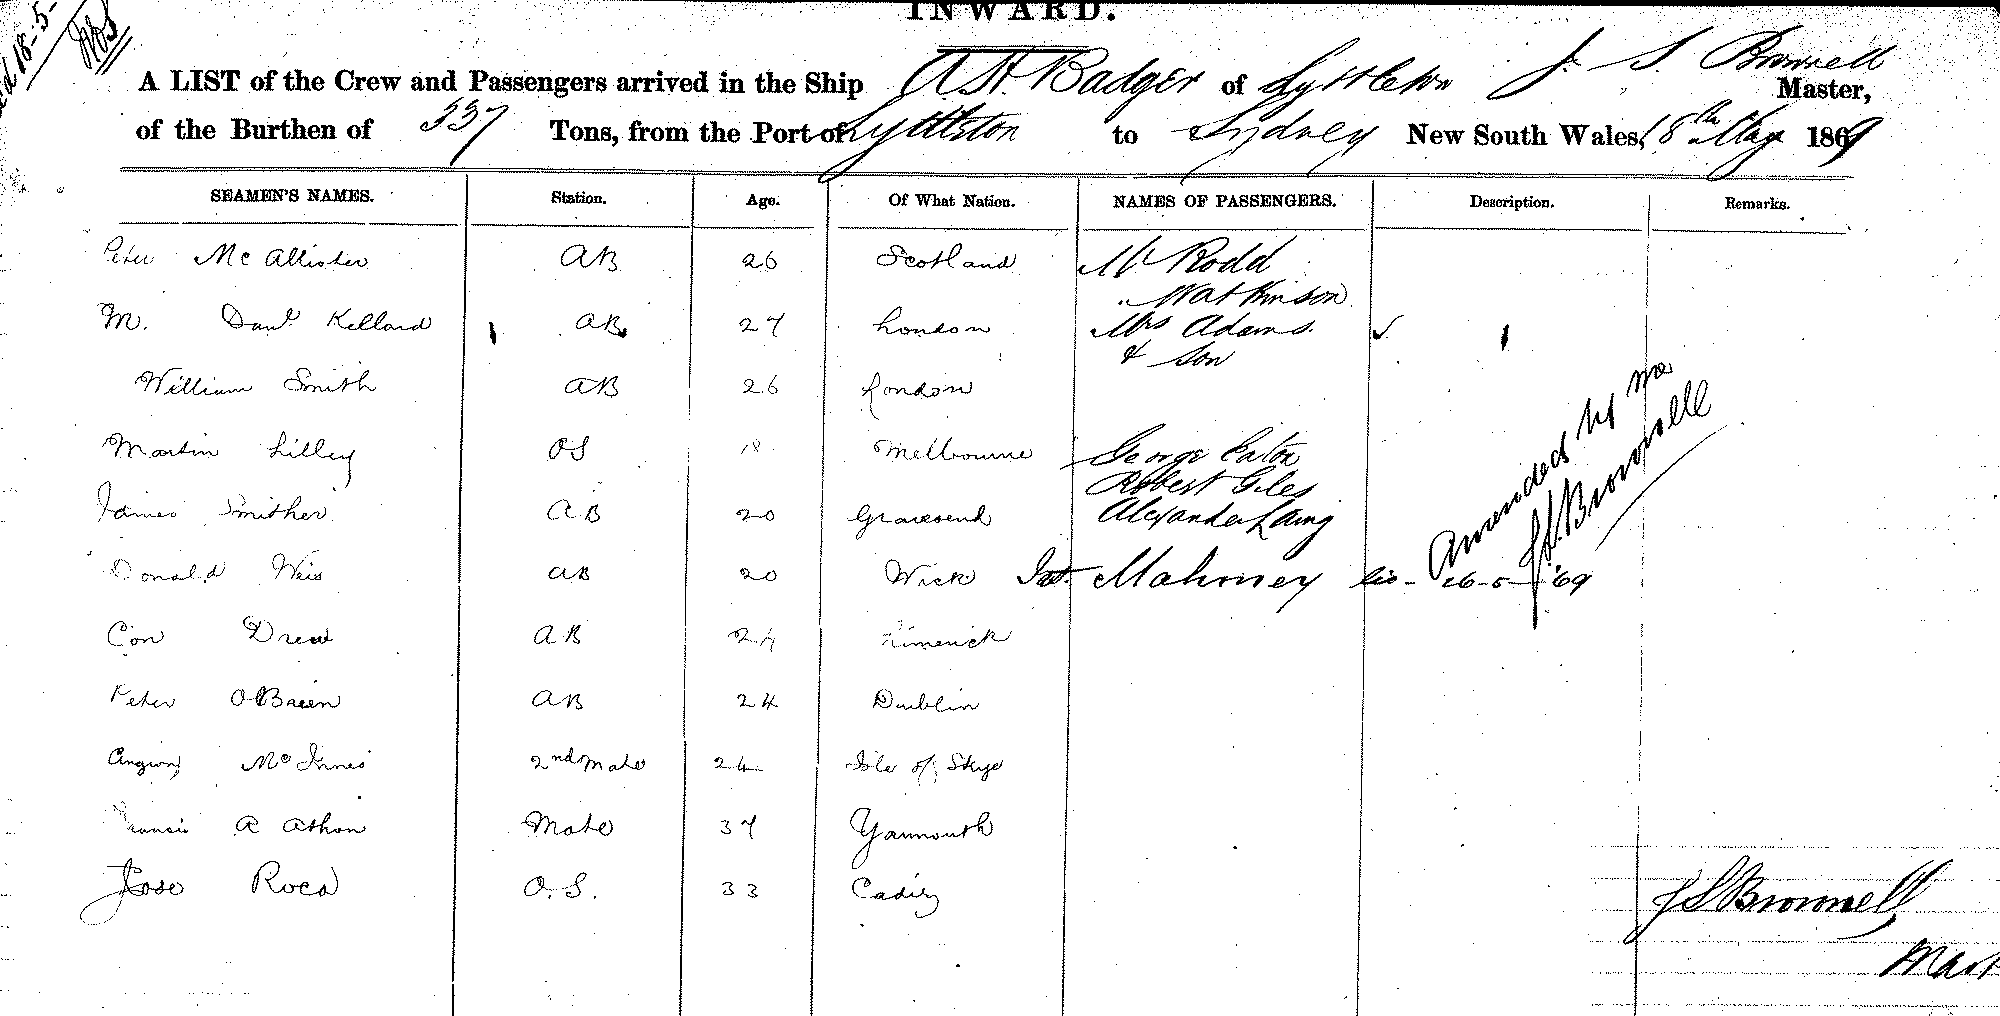 INWARD.
A LIST of the Crew and Passengers arrived in the Ship A. H. Badger of Lyttleton J. S. Brownell Master,
of the Burthen of 337 Tons, from the Port of Lyttleton to Sydney New South Wales, 18th May 1869
SEAMEN'S NAMES. Station. Age. Of What Nation. NAMES OF PASSENGERS. Description. Remarks.
Peter McAllister AB 26 Scotland Mr Rodd
Watkinson
M. Danl Kellard AB 27 London Mrs Adams
& Son
William Smith AB 26 London
Martin Lilley OS 18 Melbourne George Eaton
Robert Giles
James Smither AB 20 Gravesend Alexander Laing
Donald Weis AB 20 Wick Mahoney 69
Con Drew AB 24 Limerick
Peter O'Brien AB 24 Dublin
McInnes 2nd Mate 24 Isle of Skye
Francis A Athon Mate 37 Yarmouth
Jose Roca O.S. 33 Cadiz
Amended by me
J S Brownell
J S Brownell